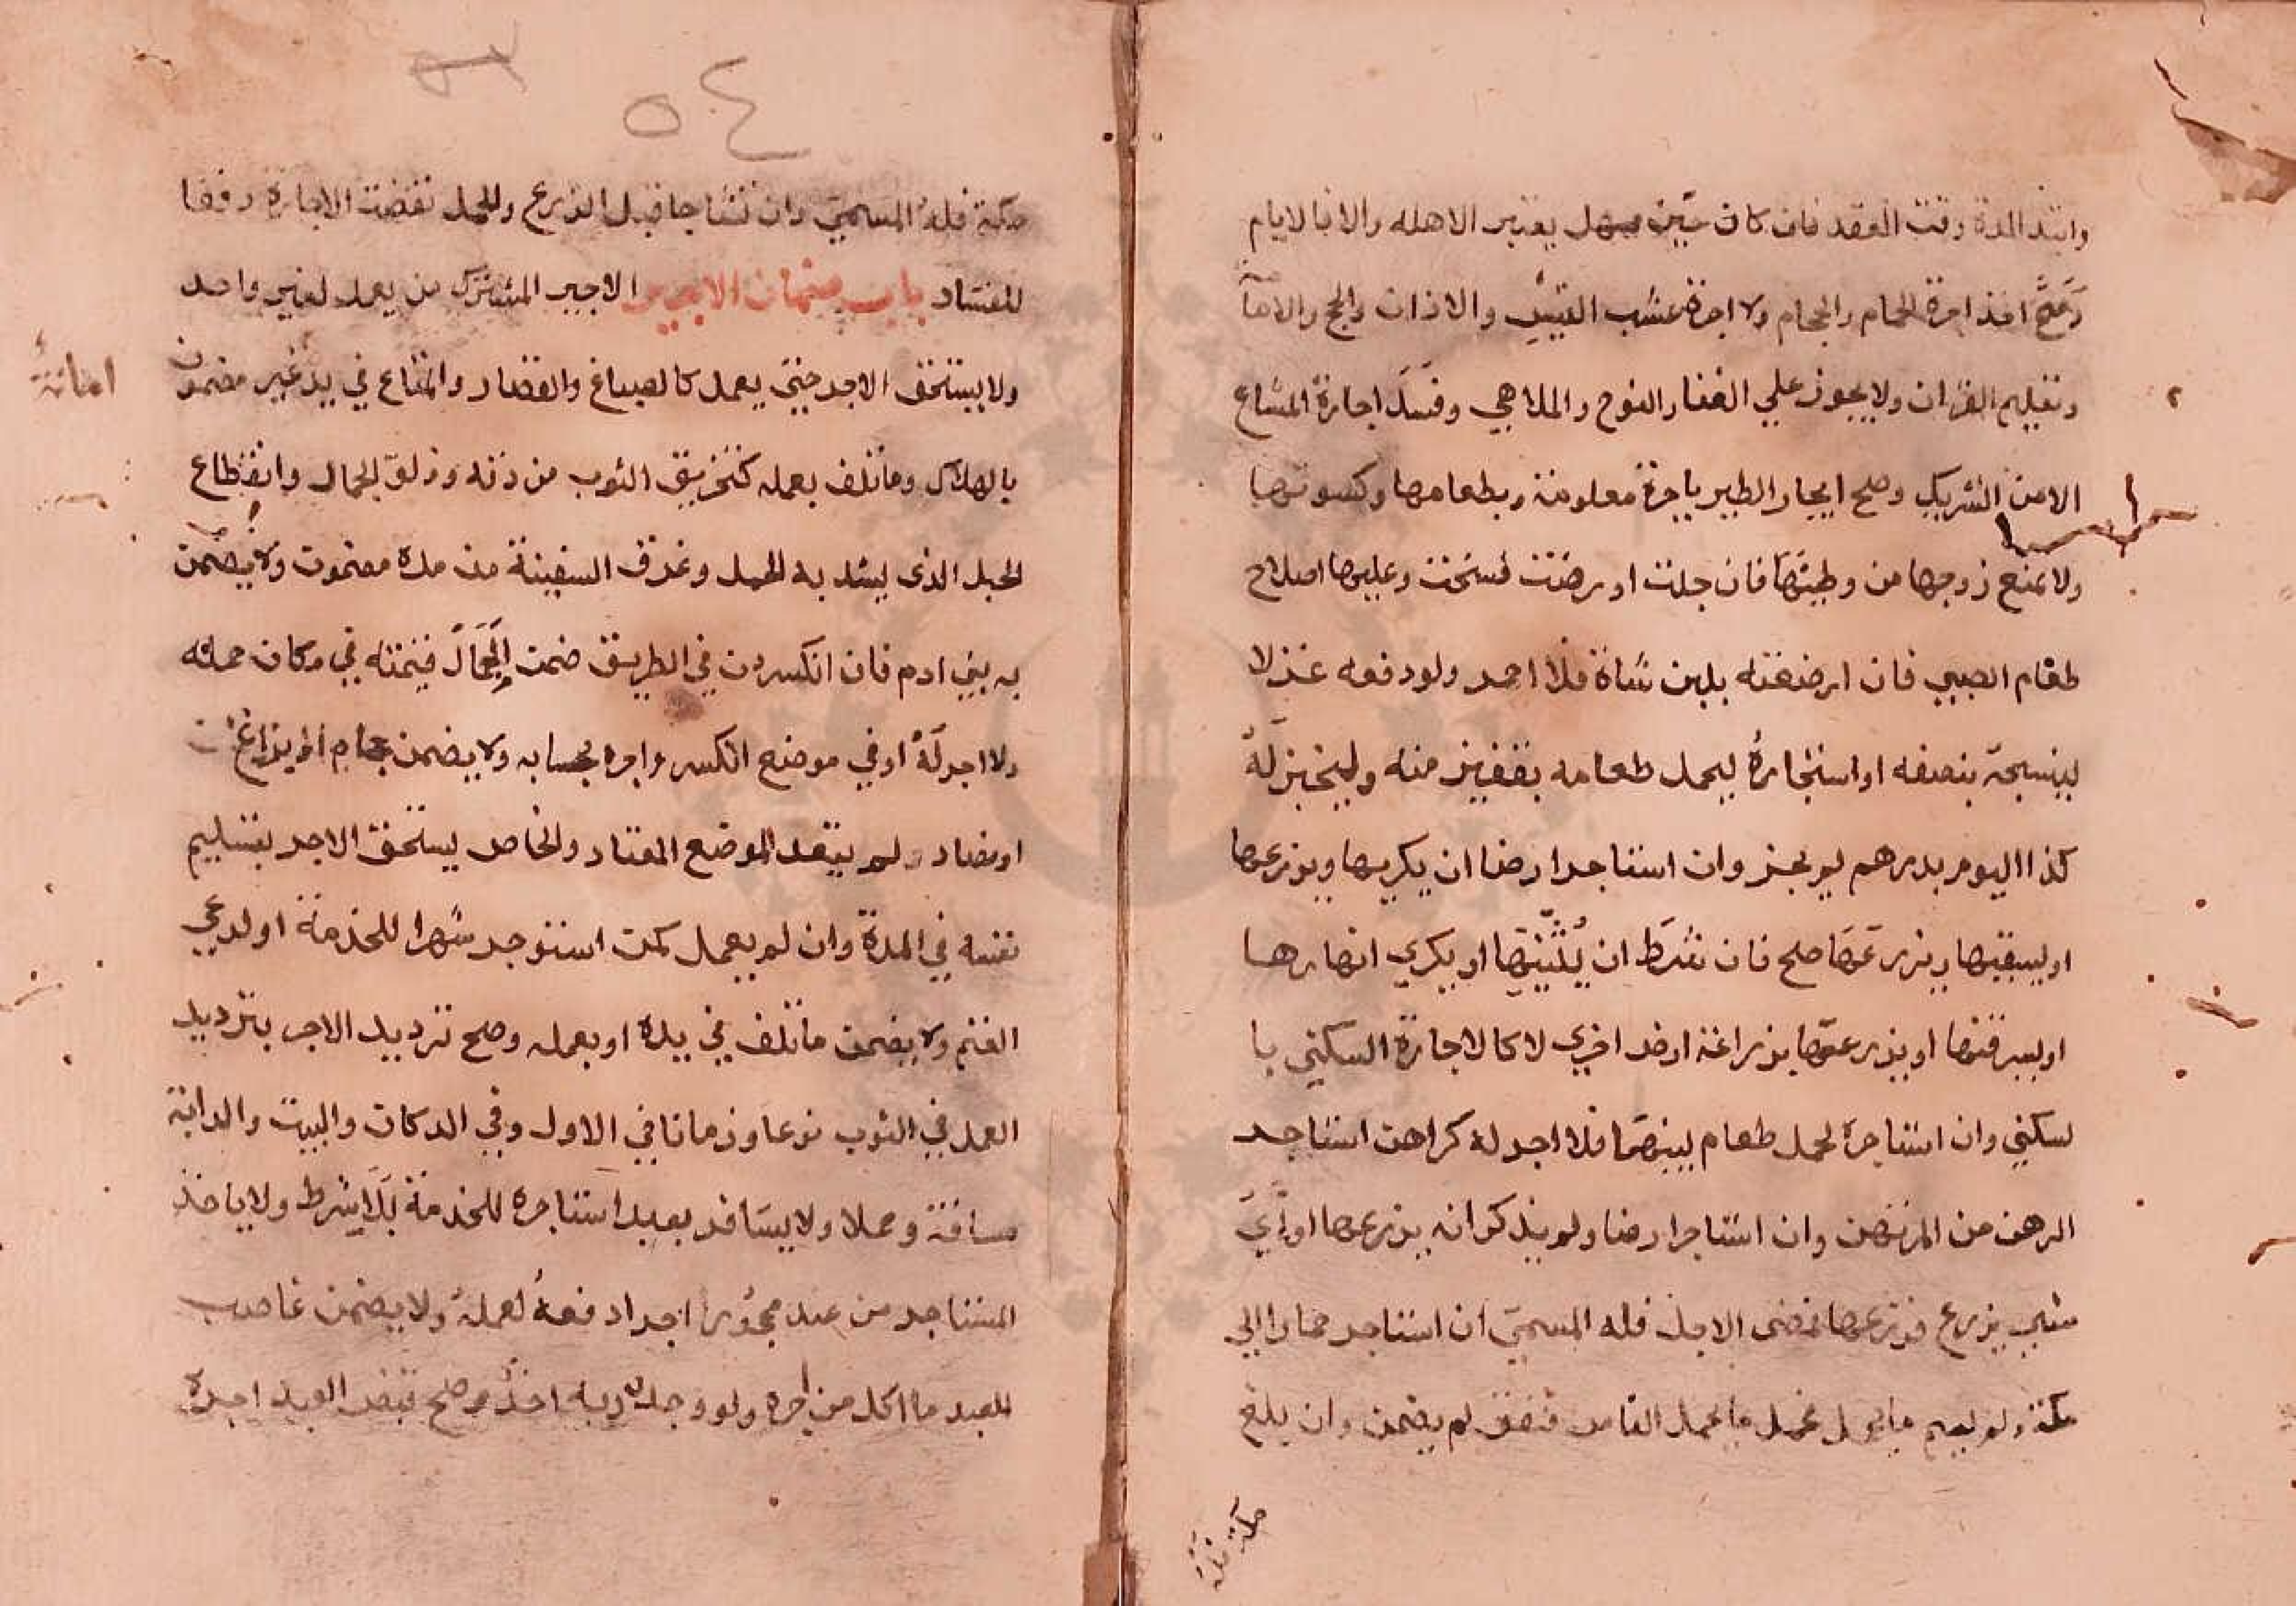 وابتدا المدة وقت العقد فان كان حين يهل يعتبر الاهله والا فا لايام
وصح اخذ اجرة الحمام والحجام ولا اجرة عسب التيس والاذان والحج والامامة
وتعليم القران ولا يجوز علي الغنا والنوح والملاهي وفسد اجارة المشاع
الا من الشريك وصح ايجار الظير باجرة معلومة وبطعامها وكسوتها
ولا يمنع زوجها من وطيها فان حبلت او مرضت فسخت وعليها اصلاح
طعام الصبي فان ارضعته بلبن شاة فلا اجر ولو دفعه غزلا
لينسجه بنصفه او استجاره ليحمل طعامه بقفيز منه وليخبز له
كذا اليوم بدرهم لم يجز وان استاجر ارضا ان يكريها ويزرعها
او ليسقيها ويزرعها صلح فان شرط ان يثنيها او يكري انهارها
او يسرقنها او يزرعها بزراعة ارض اخري لا كالاجارة السكني با
لسكني وان استاجره لحمل طعام بينهما فلا اجر له كراهن استاجر
الرهن من المرتهن وان استاجر ارضا ولم يذكر انه يزرعها او اي
شي يزرع فزرعها فمضي الاجل فله المسمي ان استاجر حمارا الي
مكة ولم يسم ما يحمل فحمل ما يحمل الناس فنفق لم يضمن وان بلغ
مكة فله
٥٤
مكة فله المسمي وان تشاحا قبل الزرع والحمل نقضت الاجارة دفعا
للفساد باب ضمان الاجير الاجير المشترك من يعمل لغير واحد
ولا يستحق الاجر حتي يعمل كالصباغ والقصار والمتاع في يده غير مضمون
امانة
بالهلاك وما تلف بعمله كتخريق الثوب من دقه وزلق الحمال وانقطاع
الحبل الذي يشد به الحمل وغرق السفينة من مده مضمون ولا يضمن
به بني ادم فان انكسر دن في الطريق ضمن الحمال قيمته في مكان حمله
ولا اجر له او في موضع انكسر واجره بحسابه ولا يضمن حجام او بزاغ
او فصاد ولم يتعد الموضع المعتاد والخاص يستحق الاجر بتسليم
نفسه في المدة وان لم يعمل كمن استوجر شهرا للخدمة او لرعي
الغنم ولا يضمن ما تلف في يده او بعمله وصح ترديد الاجر بترديد
العمل في الثوب نوعا وزمانا في الاول وفي الدكان والبيت والدابة
مسافة وحملا ولا يسافر بعبد استاجره للخدمة بلا شرط ولا ياخذ
المستاجر من عبد محجور اجرا دفعه لعمله ولا يضمن غاصب
العبد ما اكل من اجره ولو وجده ربه اخذه وصح قبض العبد اجره